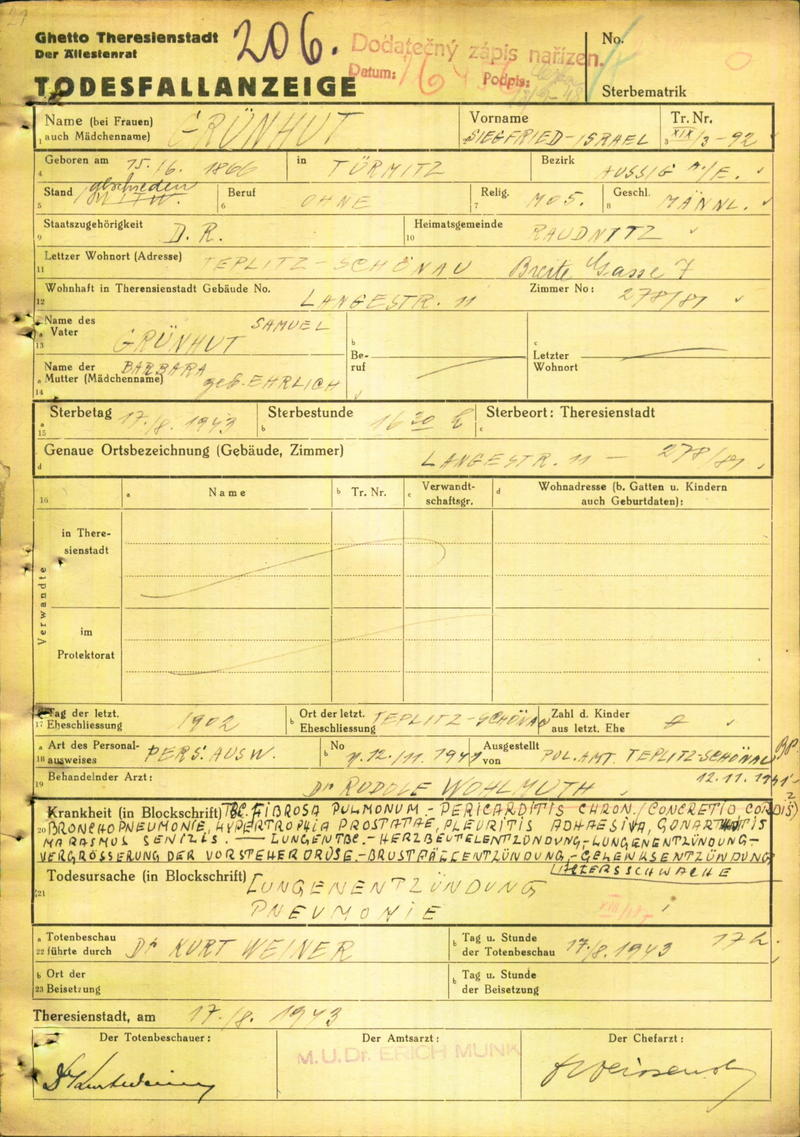 Ghetto Theresienstadt
Der Ältestenrat
206.
Dodatečný zápis nařízen.
Datum: Podpis:
No.
TODESFALLANZEIGE
Sterbematrik
Name (bei Frauen) auch Mädchenname) GRÜNHUT
Vorname SIEGFRIED-ISRAEL
Tr. Nr. XIX/3-92
1 3
4 Geboren am 15./6. 1866 in TÜRMITZ Bezirk AUSSIG A/E.
5 Stand geschieden 6 Beruf OHNE 7 Relig. MOS. 8 Geschl. MÄNNL.
9 Staatszugehörigkeit D.R. 10 Heimatsgemeinde RAUDNITZ
11 Letzter Wohnort (Adresse) TEPLITZ-SCHÖNAU Breite Gasse 7
12 Wohnhaft in Theresienstadt Gebäude No. LANGESTR. 11 Zimmer No: 278/81
13 a Name des Vater SAMUEL GRÜNHUT
b Beruf
c Letzter Wohnort
14 a Name der Mutter (Mädchenname) BARBARA geb. EHRLICH
15 a Sterbetag 17./8. 1943 b Sterbestunde 16 30 h c Sterbeort: Theresienstadt
d Genaue Ortsbezeichnung (Gebäude, Zimmer) LANGESTR. 11 — 278/81
16 a Name b Tr. Nr. c Verwandtschaftsgr. d Wohnadresse (b. Gatten u. Kindern auch Geburtdaten):
Verwandte
in Theresienstadt
im Protektorat
17 a Tag der letzt. Eheschliessung 1902 b Ort der letzt. Eheschliessung TEPLITZ-SCHÖNAU Zahl d. Kinder aus letzt. Ehe
18 a Art des Personalausweises PERS. AUSW. b No Ausgestellt von POL. AMT. TEPLITZ-SCHÖNAU
19 Behandelnder Arzt: Dr RUDOLF WOHLMUTH 12.11.1941
20 Krankheit (in Blockschrift) TBC. FIBROSA PULMONUM - PERICARDITIS CHRON. (CONCRETIO CORDIS)
BRONCHOPNEUMONIE, HYPERTROPHIA PROSTATAE, PLEURITIS ADHAESIVA,
MARASMUS SENILIS. — LUNGENTBC. - HERZBEUTELENTZÜNDUNG - LUNGENENTZÜNDUNG -
VERGRÖSSERUNG DER VORSTEHERDRÜSE - BRUSTFELLENTZÜNDUNG - GELENKSENTZÜNDUNG
ALTERSSCHWÄCHE
21 Todesursache (in Blockschrift) LUNGENENTZÜNDUNG
PNEUMONIE
22 a Totenbeschau führte durch Dr KURT WEINER b Tag u. Stunde der Totenbeschau 17./8. 1943 17 h.
23 b Ort der Beisetzung b Tag u. Stunde der Beisetzung
Theresienstadt, am 17./8. 1943
Der Totenbeschauer: Der Amtsarzt: Der Chefarzt:
M.U.Dr. ERICH MUNK